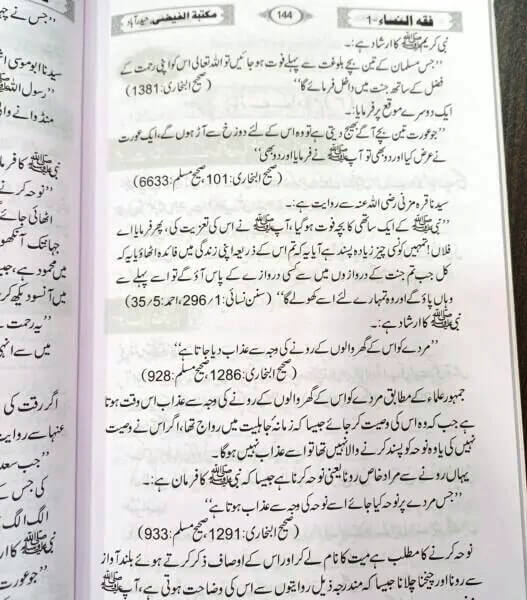 فقہ النساء-1
144
مکتبۃ الفیضی، حیدرآباد
نبی کریم ﷺ کا ارشاد ہے:۔
”جس مسلمان کے تین بچے بلوغت سے پہلے فوت ہو جائیں تو اللہ تعالی اس کو اپنی رحمت کے
فضل کے ساتھ جنت میں داخل فرمائے گا“ (صحیح البخاری: 1381)
ایک دوسرے موقع پر فرمایا:۔
”جو عورت تین بچے آگے بھیج دیتی ہے تو وہ اس کے لئے دوزخ سے آڑ ہوں گے، ایک عورت
نے عرض کیا اور دو بھی تو آپ ﷺ نے فرمایا اور دو بھی“
(صحیح البخاری: 101، صحیح مسلم: 6633)
سیدنا قرہ مزنی رضی اللہ عنہ سے روایت ہے:۔
”نبی ﷺ کے ایک ساتھی کا بچہ فوت ہو گیا، آپ ﷺ نے اس کی تعزیت کی، پھر فرمایا اے
فلاں! تمہیں کونسی چیز زیادہ پسند ہے آیا یہ کہ تم اس کے ذریعہ اپنی زندگی میں فائدہ اٹھاؤ یا یہ کہ
کل جب تم جنت کے دروازوں میں سے کسی دروازے کے پاس آؤ گے تو اسے پہلے سے
وہاں پاؤ گے اور وہ تمہارے لئے اسے کھولے گا“ (سنن نسائی: 1/296، احمد: 5/35)
نبی ﷺ کا ارشاد ہے:۔
”مردے کو اس کے گھر والوں کے رونے کی وجہ سے عذاب دیا جاتا ہے“
(صحیح البخاری: 1286، صحیح مسلم: 928)
جمہور علماء کے مطابق مردے کو اس کے گھر والوں کے رونے کی وجہ سے عذاب اس وقت ہوتا
ہے جب کہ وہ اس کی وصیت کر جائے جیسا کہ زمانہ جاہلیت میں رواج تھا، اگر اس نے وصیت
نہیں کی یا وہ نوحہ کو پسند کرنے والا نہیں تھا تو اسے عذاب نہیں ہوگا۔
یہاں رونے سے مراد خاص رونا یعنی نوحہ کرنا ہے جیسا کہ نبی ﷺ کا فرمان ہے:۔
”جس مردے پر نوحہ کیا جائے اسے نوحہ کی وجہ سے عذاب ہوتا ہے“
(صحیح البخاری: 1291، صحیح مسلم: 933)
نوحہ کرنے کا مطلب ہے میت کا نام لے کر اور اس کے اوصاف ذکر کرتے ہوئے بلند آواز
سے رونا اور چیخنا چلانا جیسا کہ مندرجہ ذیل روایتوں سے اس کی وضاحت ہوتی ہے، آپ ﷺ
”جس نے چہ
سیدنا ابو موسی اش
”رسول اللہ ﷺ
منڈوانے والی
نبی ﷺ کا فرما
”نوحہ کرنے
اٹھائی جائے گ
جہاں تک آنکھو
میں محمود ہے، جیس
میں آنسو دیکھ کر
”یہ رحمت ہے
میں سے انہی
اگر رقت کی
عنہا سے روایت
”جب سعد
کی جس کے
الگ الگ
نبی ﷺ کا
”جو عورت